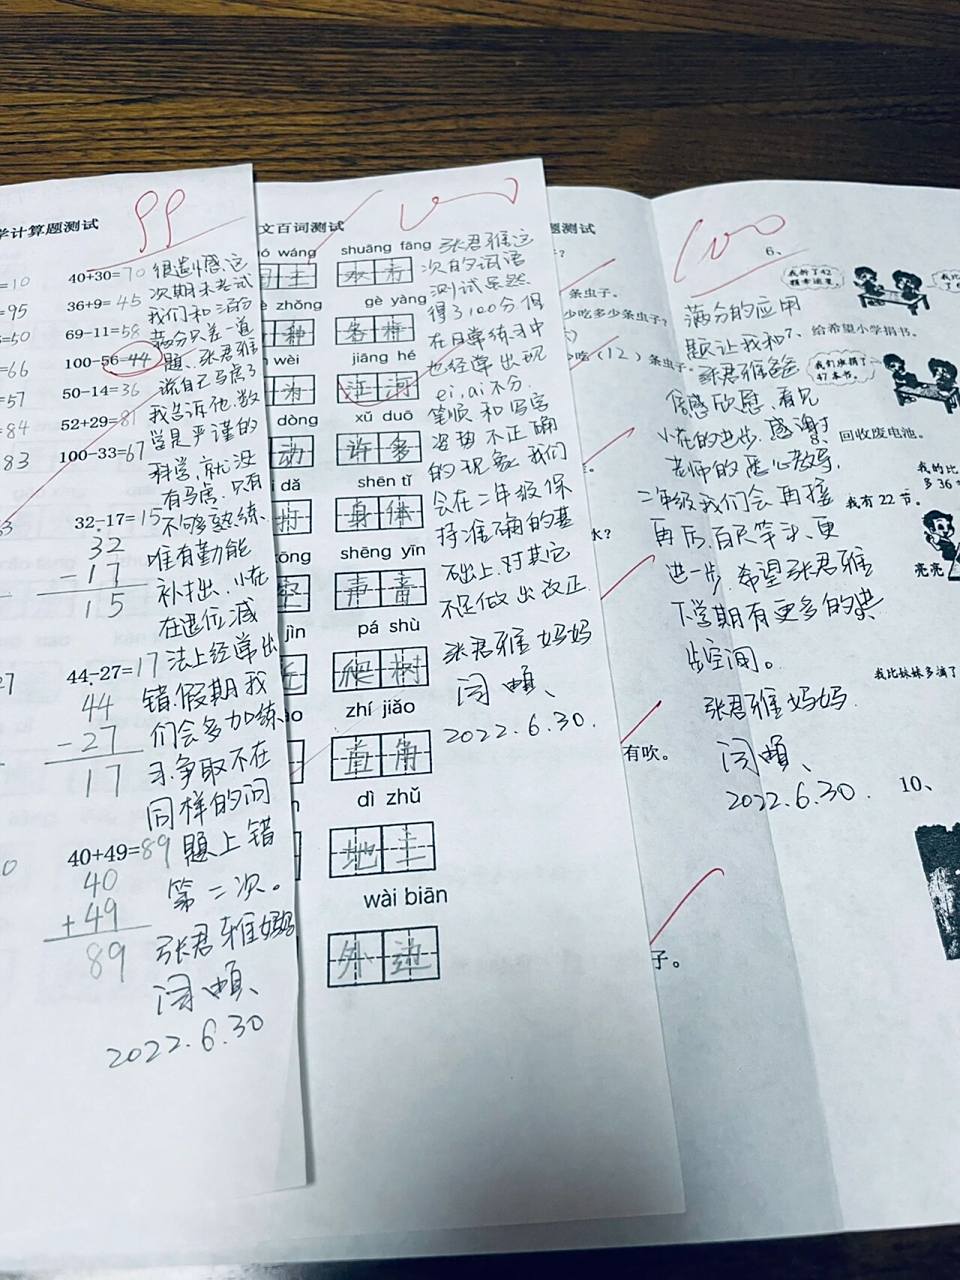 学计算题测试
99
=10
40+30=70
=95
36+9=45
=50
69-11=58
=66
100-56=44
=57
50-14=36
=84
52+29=81
83
100-33=67
63
32-17=15
32
-17
15
27
44-27=17
44
-27
17
40+49=89
40
+49
89
很遗憾,这
次期末考试
我们和满
满分只差一道
题、张君雅
说自己马虎了
我告诉他,数
学是严谨的
科学,就没
有马虎,只有
不够熟练,
唯有勤能
补拙、小在
在退位减
法上经常出
错,假期我
们会多加练
习,争取不在
同样的问
题上错
第二次。
张君雅妈妈
闫
2022.6.30
文百词测试
100
wáng shuāng fāng
主 双方
zhǒng gè yàng
种 各样
wèi jiāng hé
为 江河
dòng xǔ duō
动 许多
dǎ shēn tǐ
打 身体
shēng yīn
声音
jìn pá shù
近 爬树
zhí jiǎo
直角
dì zhǔ
地主
wài biān
外边
张君雅这
次的词语
测试虽然
得了100分,但
在日常练习中
也经常出现
ei,ai不分,
笔顺和写字
姿势不正确
的现象,我们
会在二年级保
持准确的基
础上,对其它
不足做出改正.
张君雅妈妈
闫
2022.6.30.
题测试
?
条虫子。
少吃多少条虫子?
吃(12)条虫子。
水?
有吹。
子。
100
6、
我折了42
7、给希望小学捐书。
我们班捐了
47本书。
8、回收废电池。
我的比
多36
我有22节。
亮亮
我比妹妹多滴了
10、
满分的应用
题,让我和
张君雅爸爸
倍感欣慰,看见
小在的进步,感谢
老师的悉心教导,
二年级我们会再接
再厉,百尺竿头,更
进一步,希望张君雅
下学期有更多的进
步空间。
张君雅妈妈.
闫
2022.6.30.